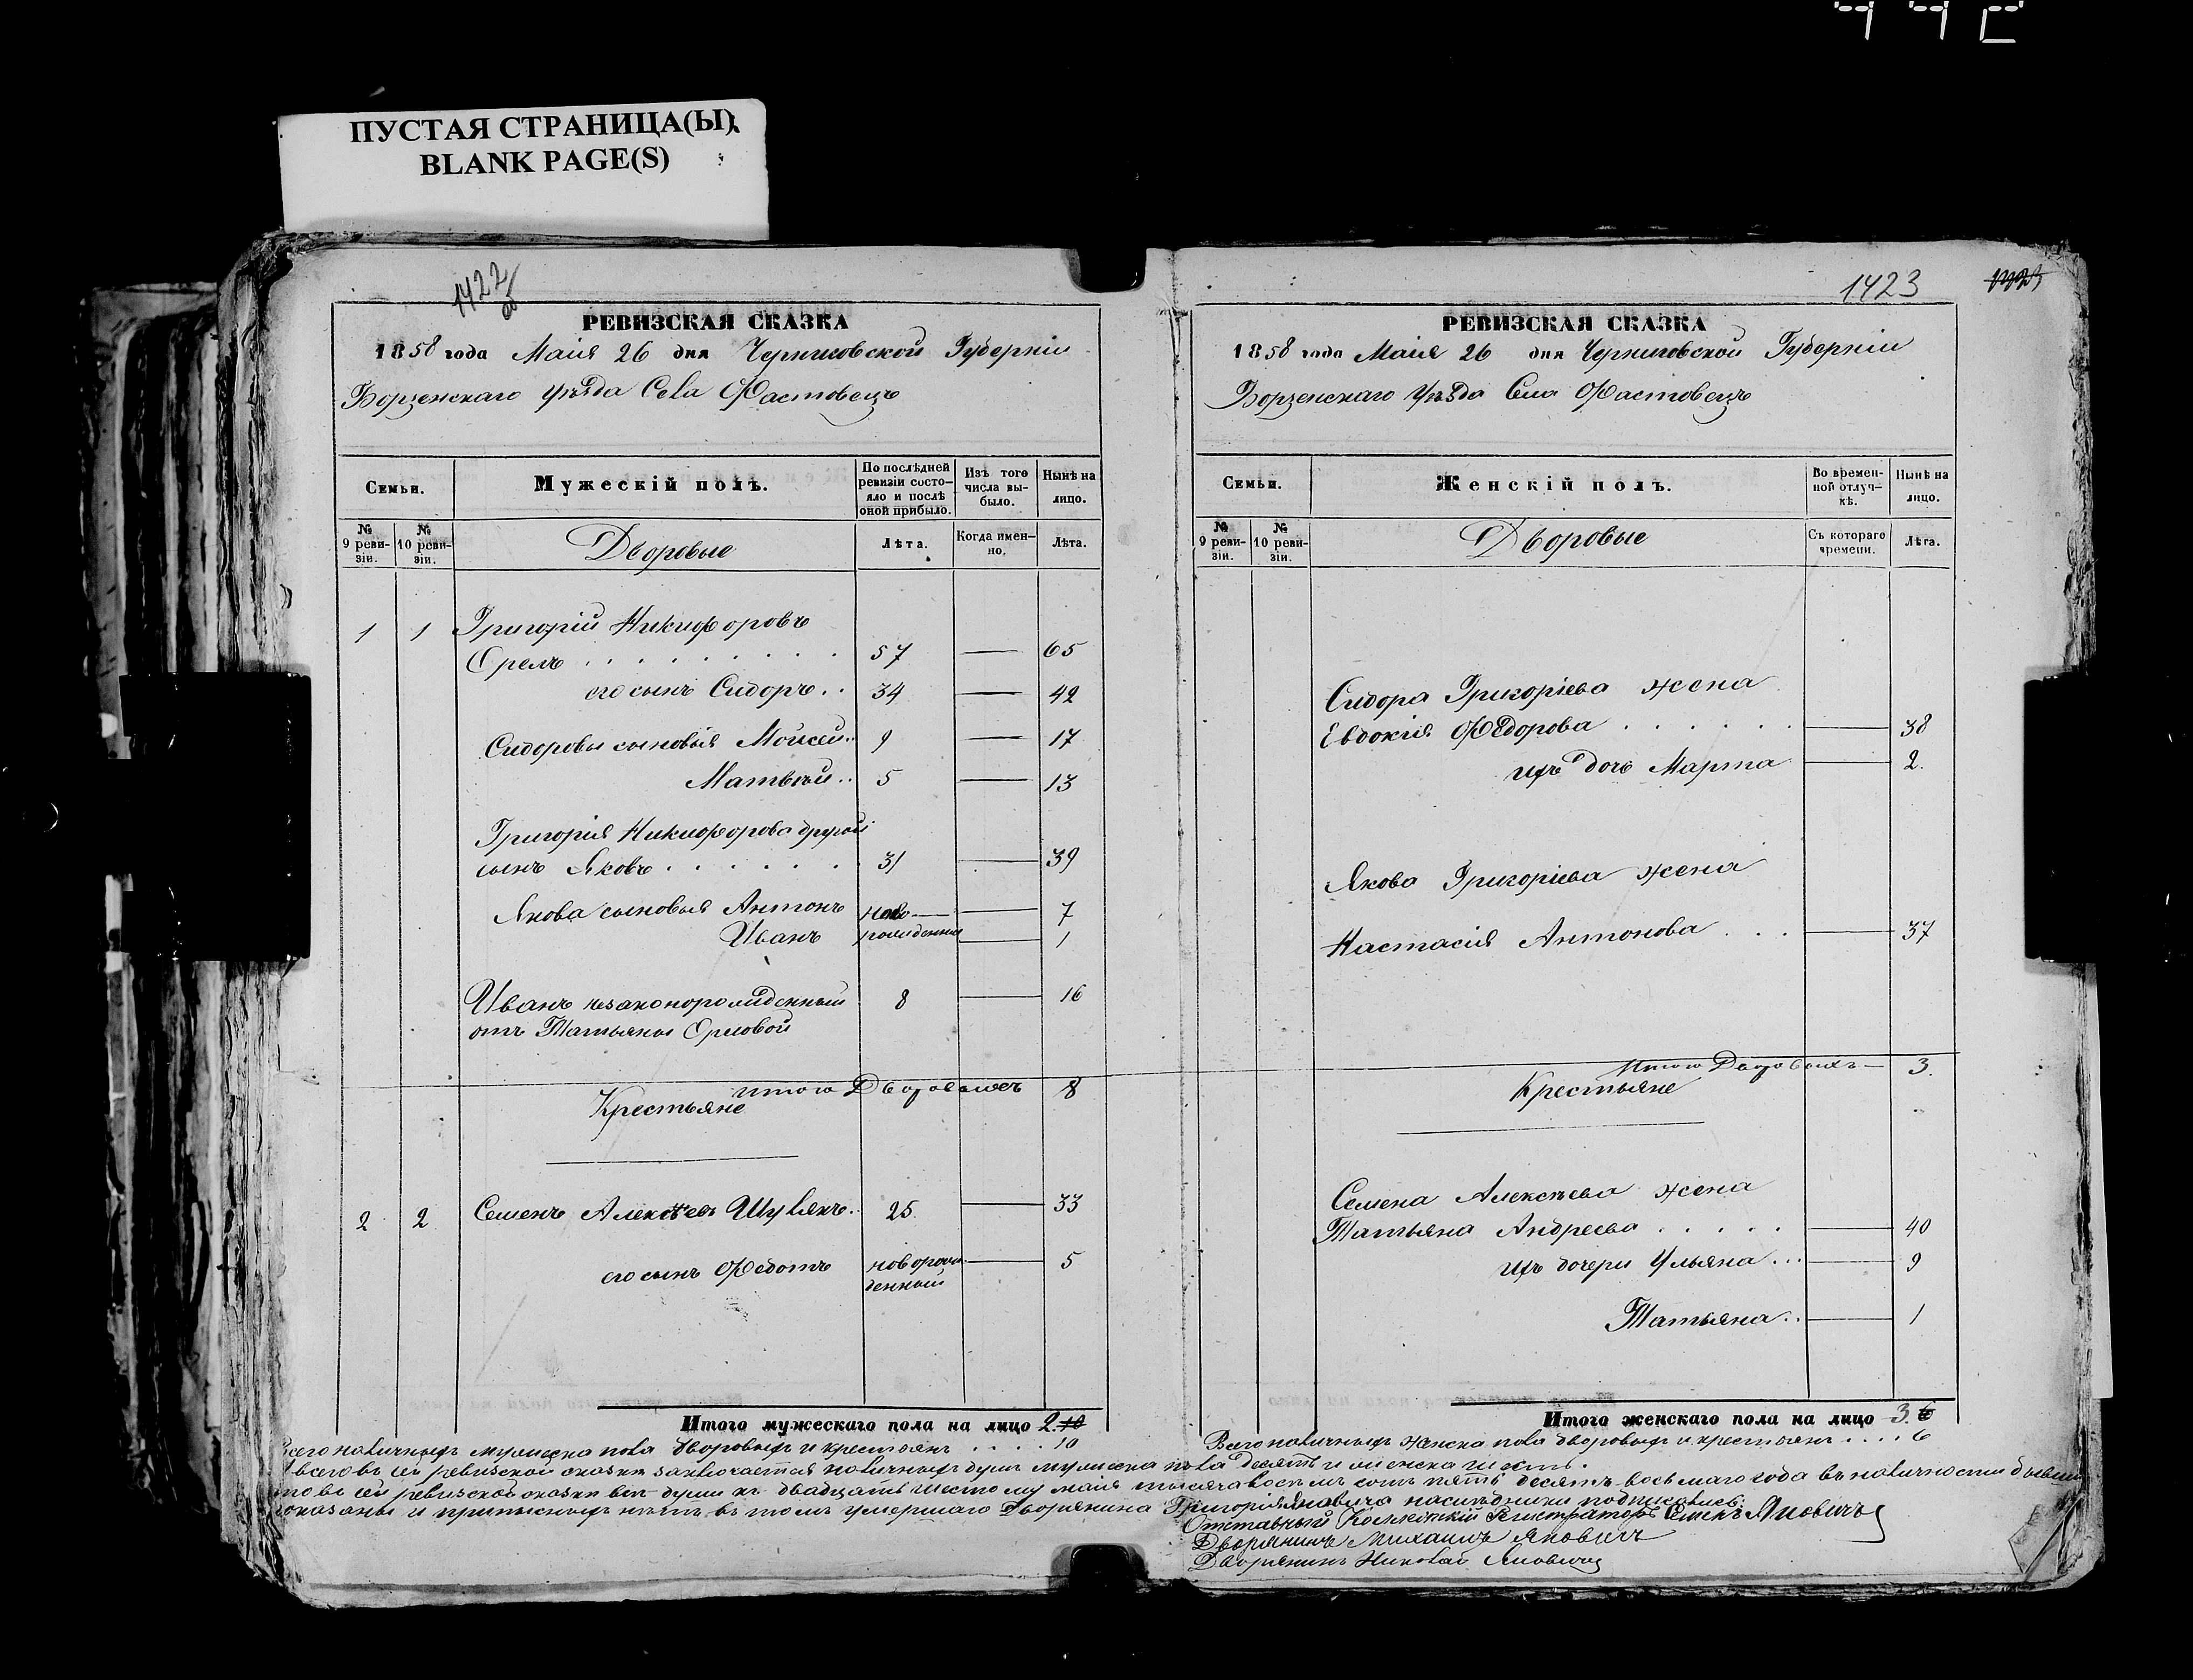 ПУСТАЯ СТРАНИЦА(Ы)
BLANK PAGE(S)
1422
об
РЕВИЗСКАЯ СКАЗКА
1858 года Маія 26 дня Черниговской Губерніи
Борзенскаго уѣзда Села Фастовецъ
Семьи.
Мужескій полъ.
По послѣдней ревизіи состо-яло и послѣ оной прибыло.
Изъ того числа вы-было.
Нынѣ на лицо.
№ 9 реви-зіи.
№ 10 реви-зіи.
Дворовые
Лѣта.
Когда имен-но.
Лѣта.
1 1 Григорій Никифоровъ
Орелъ . . . . . . . . 57 — 65
его сынъ Сидоръ . . 34 — 42
Сидоровы сыновья Мойсей . . 9 — 17
Матвѣй . . 5 — 13
Григорія Никифорова другой
сынъ Яковъ . . . . . . 31 — 39
Якова сыновья Антонъ ново- — 7
Иванъ рожденные — 1
Иванъ незаконорожденный 8 — 16
отъ Татьяны Орловой
итого Дворовыхъ 8
Крестьяне
2 2 Семенъ Алексѣевъ Шулякъ . 25 — 33
его сынъ Федотъ новорож- — 5
денный
Итого мужескаго пола на лицо 2 10
Всего наличныхъ мужеска пола дворовыхъ и крестьянъ . . . . 10
1423
1423
РЕВИЗСКАЯ СКАЗКА
1858 года Маія 26 дня Черниговской Губерніи
Борзенскаго Уѣзда Села Фастовецъ
Семьи.
Женскій полъ.
Во времен-ной отлуч-кѣ.
Нынѣ на лицо.
№ 9 реви-зіи.
№ 10 реви-зіи.
Дворовые
Съ котораго времени.
Лѣта.
Сидора Григоріева жена
Евдокія Федорова . . . . . . — 38
ихъ дочь Марта — 2.
Якова Григоріева жена
Настасія Антонова . . . — 37
Итого Дворовыхъ — 3.
Крестьяне
Семена Алексѣева жена
Татьяна Андреева . . . . . — 40
ихъ дочери Ульяна . . . — 9
Татьяна . . — 1
Итого женскаго пола на лицо 3. 6
Всего наличныхъ женска пола дворовыхъ и крестьянъ . . . . 6
всего въ сей ревизской сказкѣ заключается наличныхъ душъ мужеска пола десять и женска шесть.
сей ревизской сказки всѣ души къ двадцать шестому маія тысяча восемь сотъ пять десятъ восьмаго года въ наличности бывшія
показаны и прописныхъ нѣтъ въ томъ умершаго Дворянина Григорія Яновича наслѣдники подписались:
Отставный Коллежскій Регистраторъ Семенъ Яновичъ
Дворянинъ Михаилъ Яновичъ
Дворянинъ Николай Яновичъ